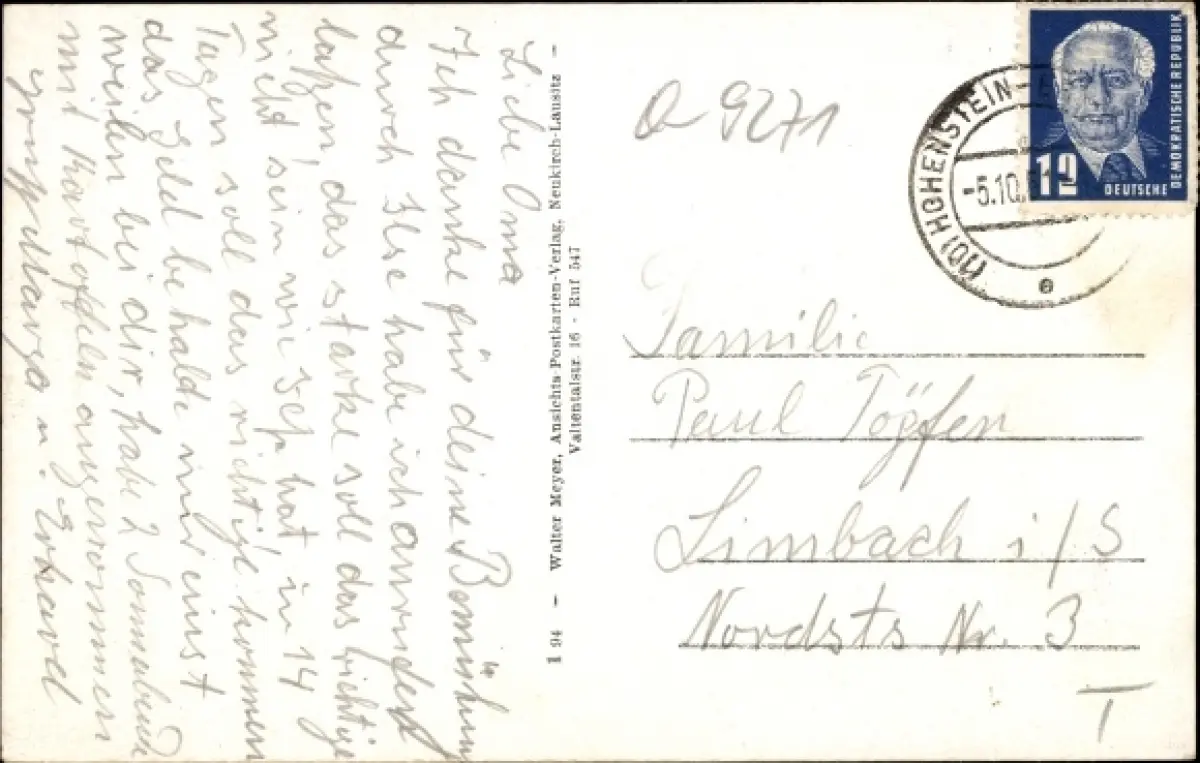 Liebe Oma
Ich danke für deine Bemühung
durch Ilse habe ich
laßen, das starke soll das richtige
nicht sein wir hat in 14
Tagen soll das richtige kommen
das Geld behalde mir einst
weilen bei dir, habe 2 Sonnabende
mit Kartoffeln angenommen
u. Erhard
1 94 - Walter Meyer, Ansichts-Postkarten-Verlag, Neukirch-Lausitz -
Valtentalstr. 16 - Ruf 547
9271
(10) HOHENSTEIN-
-5.10.
e
12
DEUTSCHE
DEMOKRATISCHE REPUBLIK
Familie
Paul Töpfer
Limbach i/S
Nordsts Nr. 3
T